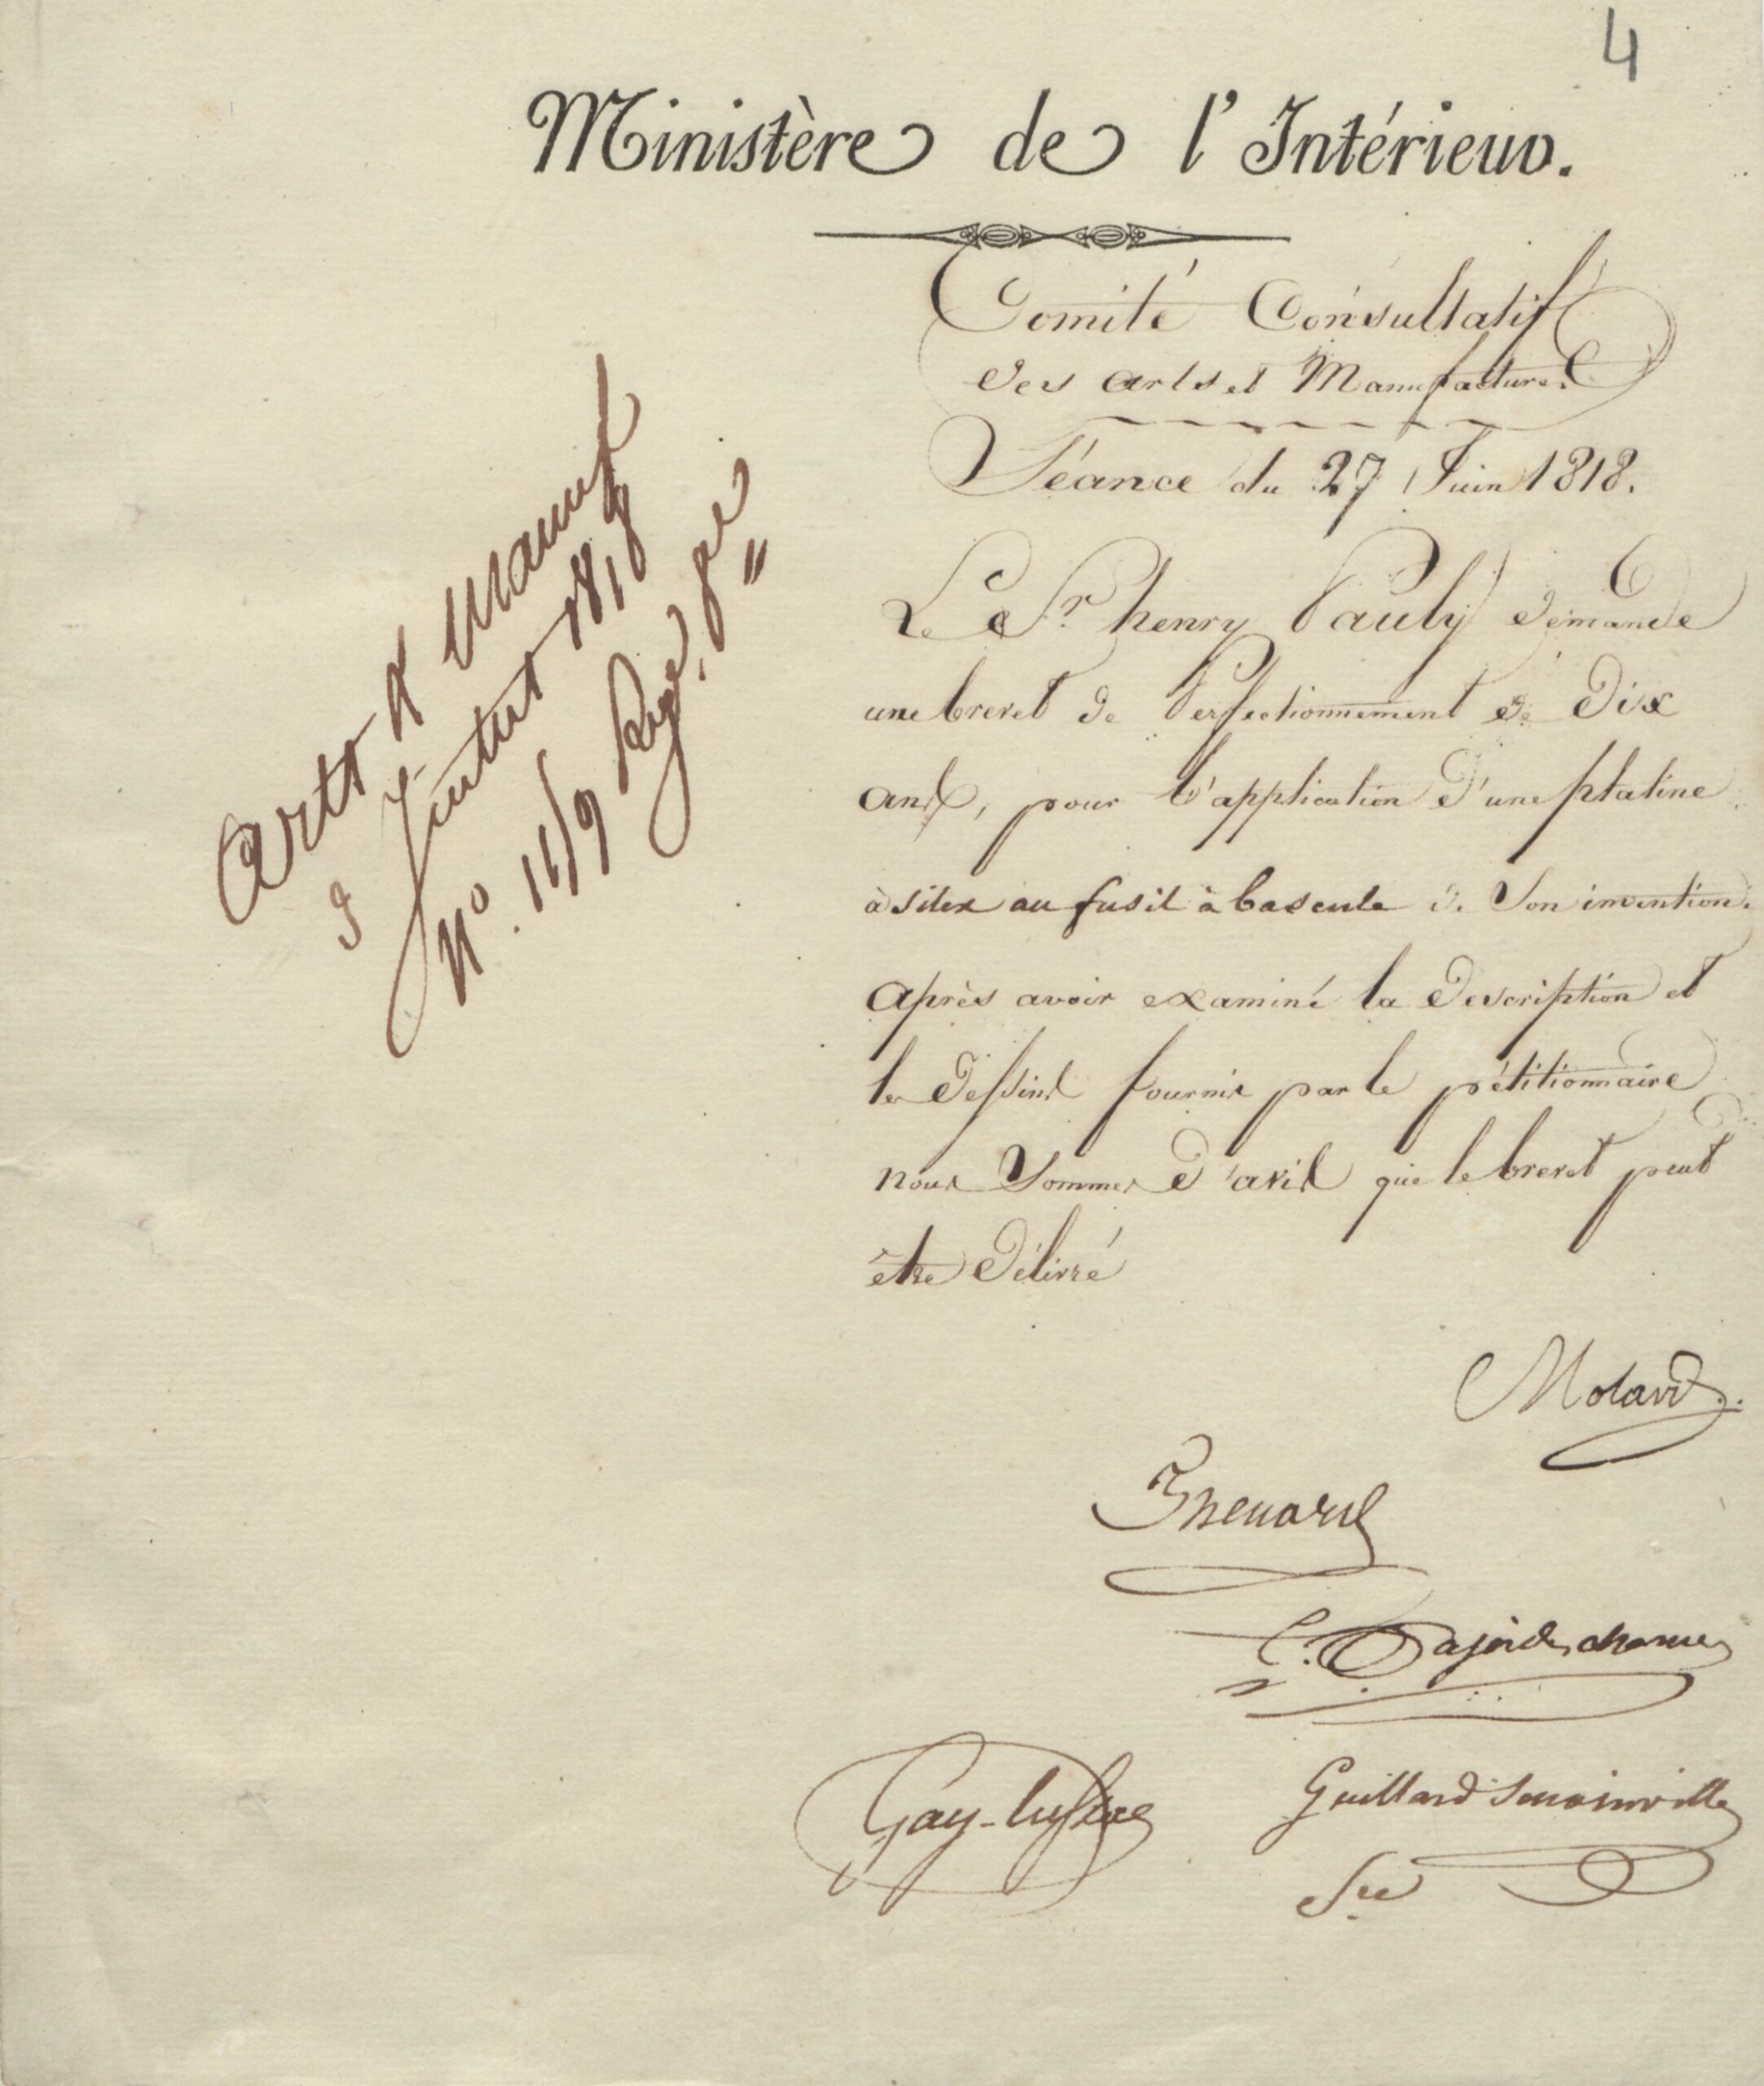 4
Ministère de l'Intérieur.
Comité Consultatif
des arts et Manufactures
Séance du 27 Juin 1818.
Le Sr. henry Pauly demande
une brevet de Perfectionnement de Dix
ans, pour l'application d'une platine
à silex au fusil à bascule de son invention.
après avoir examiné la description et
les dessins fournis par le pétitionnaire
nous sommes d'avis que le brevet peut
être délivré
Molard
Thenard
C. Pajot des charmes
Gay-Lussac
Guillard Senainville
Sre
Arts & Manuf
3 Juillet 1818
No. 1119 Regre. gal